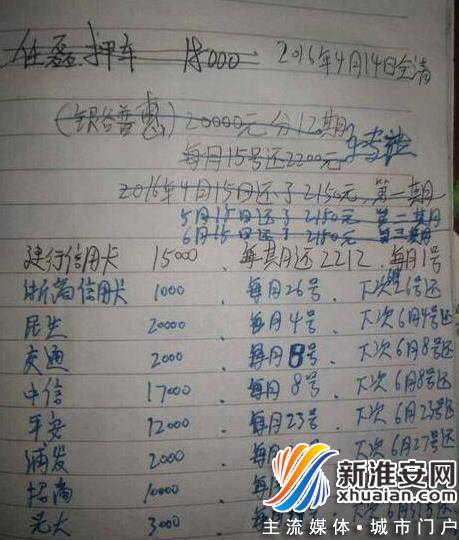 任磊押车 18000. 2016年4月14日全清
(银谷普惠) 20000元分12期
每月15号还2200元
2016年4月15日还了2150元,第一期
5月15日还了2150元 第二期
6月15日还了2150元 第三期
建行信用卡 15000、每期月还2212、每月1号
浙商信用卡 1000、每月26号、下次26号还
民生 20000、每月4号、下次6月4号还
交通 2000、每月8号、下次6月8号还
中信 17000、每月8号、下次6月8号还
平安 12000、每月23号、下次6月23号还
浦发 2000、每月 号、下次6月27号还
招商 10000、每月
光大 3000、每月 下次6月 号还
新淮安网
xhuaian.com
主流媒体·城市门户